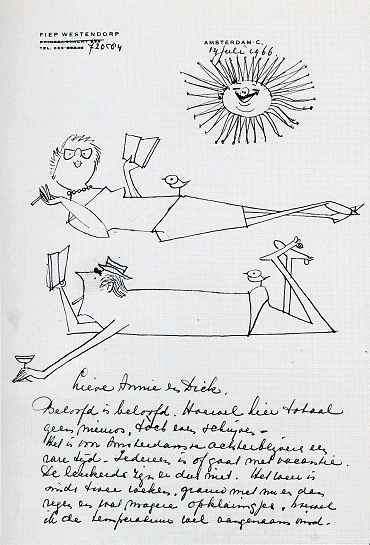 FIEP WESTENDORP
TEL. 720504
AMSTERDAM C,
19 juli 1966.
Lieve Annie en Dick.
Beloofd is beloofd. Hoewel hier totaal
geen nieuws, toch even schrijven -
Het is voor Amsterdamse achterblijvers een
rare tijd. Iedereen is of gaat met vacantie.
De leukerds zijn er dus niet. Het weer is
sinds twee weken, grauw met nu en dan
regen en wat magere opklaringjes, hoewel
de temperatuur wel aangenaam